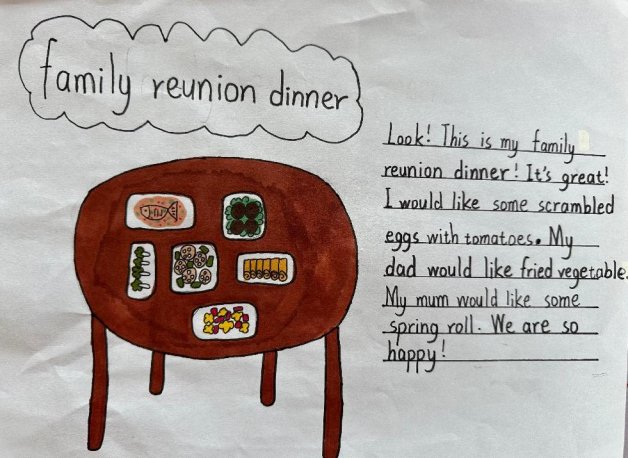 family reunion dinner
Look! This is my family
reunion dinner! It's great!
I would like some scrambled
eggs with tomatoes. My
dad would like fried vegetable.
My mum would like some
spring roll. We are so
happy!